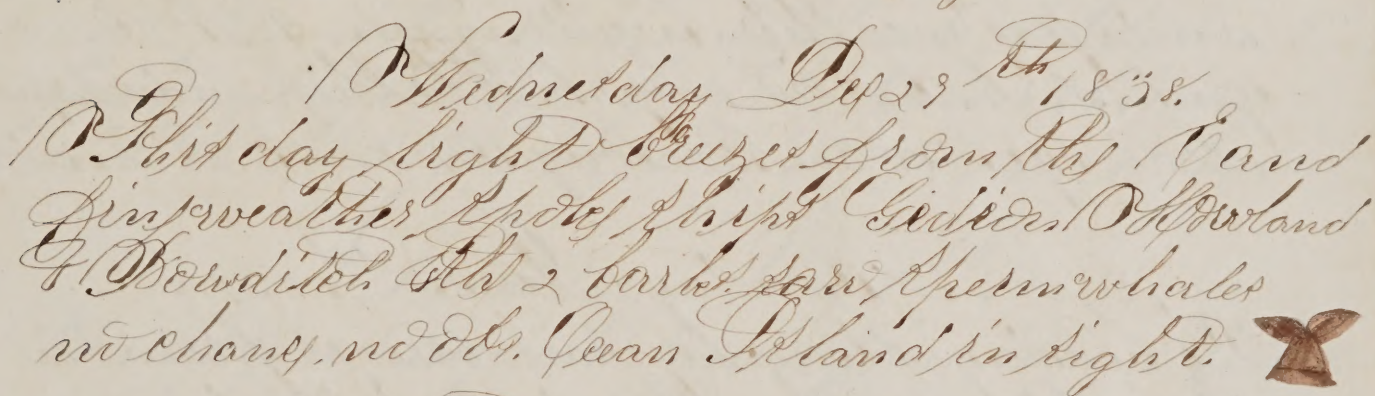 Wednesday Dec 29th 1858.
This day light breezes from the E and
fine weather spoke ships Gideon Howland
& Bowditch the 2 barks saw sperm whales
no chance. no obs. Ocean Island in sight.